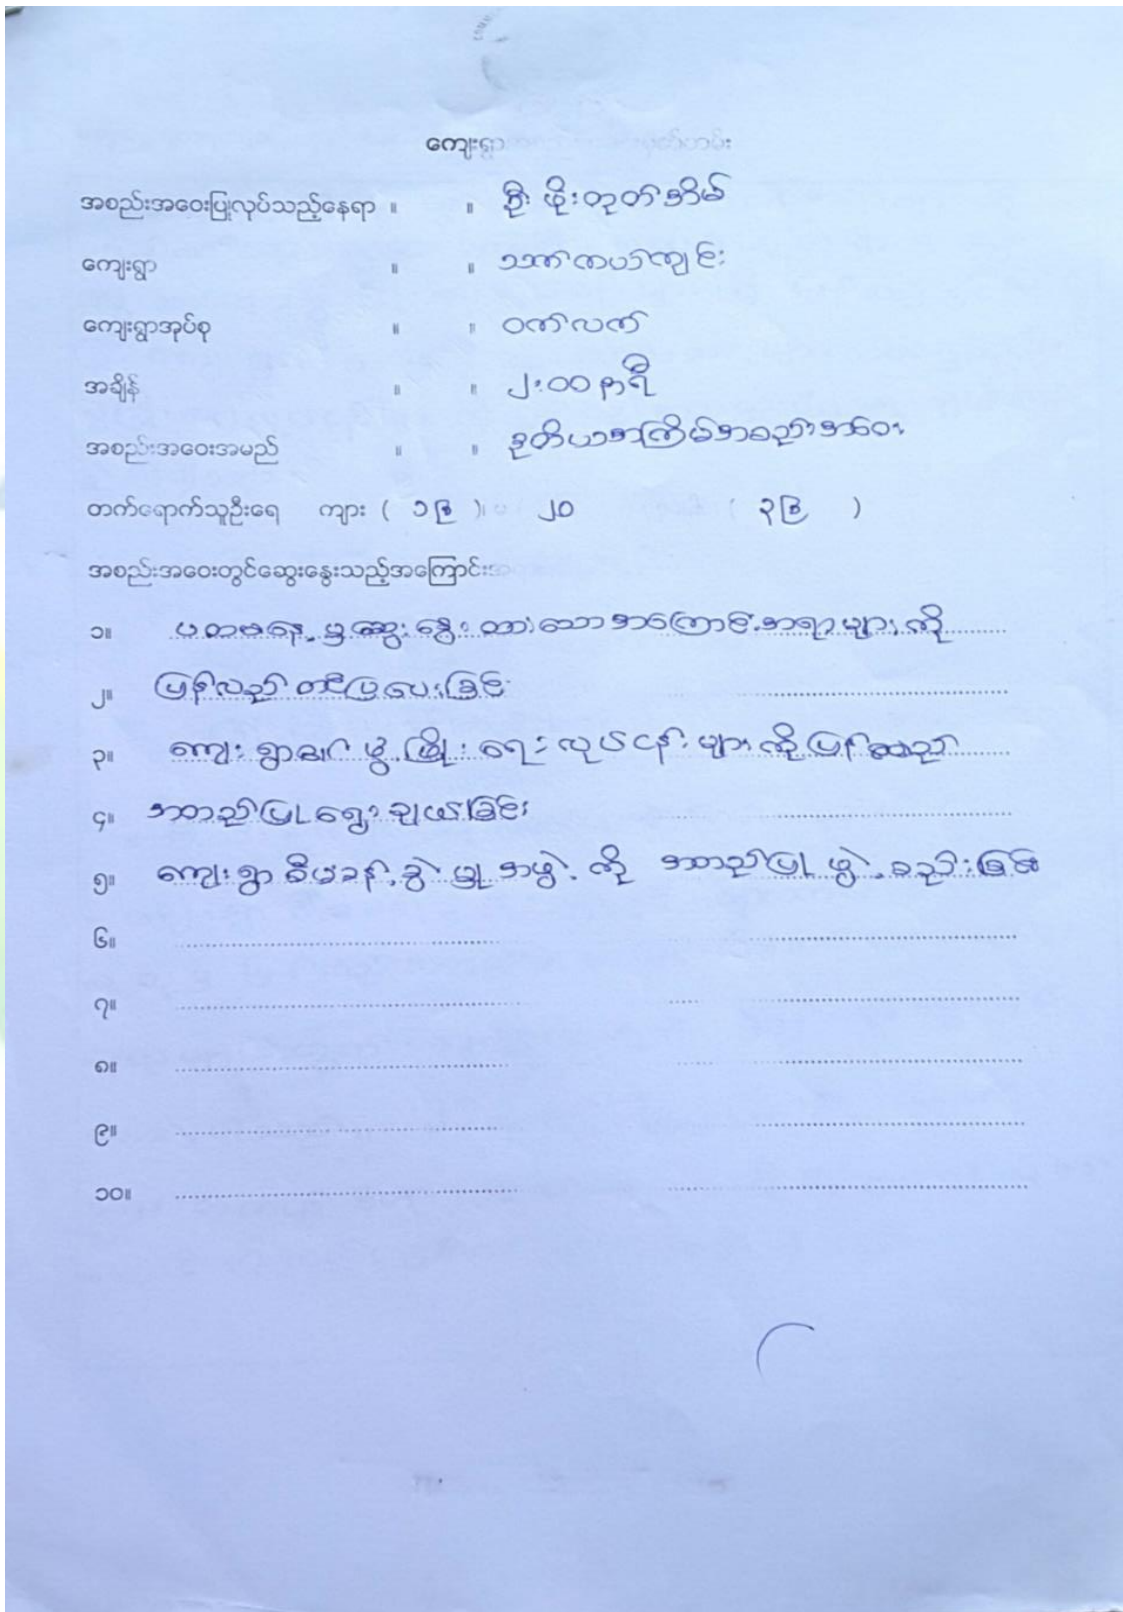 ကျေးရွာ မှတ်တမ်း
အစည်းအဝေးပြုလုပ်သည့်နေရာ ။ ။ ဦးဖိုးတုတ်အိမ်
ကျေးရွာ ။ ။ သက်ကယ်ကျင်း
ကျေးရွာအုပ်စု ။ ။ ဝက်လက်
အချိန် ။ ။ ၂း၀၀ နာရီ
အစည်းအဝေးအမည် ။ ။ ဒုတိယအကြိမ်အစည်းအဝေး
တက်ရောက်သူဦးရေ ကျား ( ၁၆ )၊ ၂၀ ( ၃၆ )
အစည်းအဝေးတွင်ဆွေးနွေးသည့်အကြောင်း
၁။ ပတမနေ့မှဆွေးနွေးထားသောအကြောင်းအရာများကို
၂။ ပြန်လည်တင်ပြပေးခြင်း
၃။ ကျေးရွာ ဖွံ့ဖြိုးရေးလုပ်ငန်းများကိုပြန်လည်
၄။ အတည်ပြုရွေးချယ်ခြင်း
၅။ ကျေးရွာစီမံခန့်ခွဲမှုအဖွဲ့ကို အတည်ပြုဖွဲ့စည်းခြင်း
၆။
၇။
၈။
၉။
၁၀။